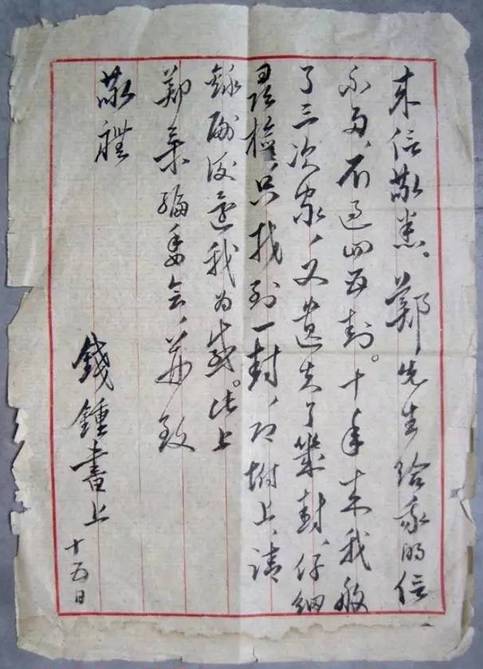 来信敬悉、鄭先生给我的信
不多、不过四五封。十年来我般
了三次家，又遗失了几封，仔细
寻检，只找到一封，即坿上，请
録副后还我为感。此上
郑集编委会，并致
敬礼
錢鍾書上
十五日